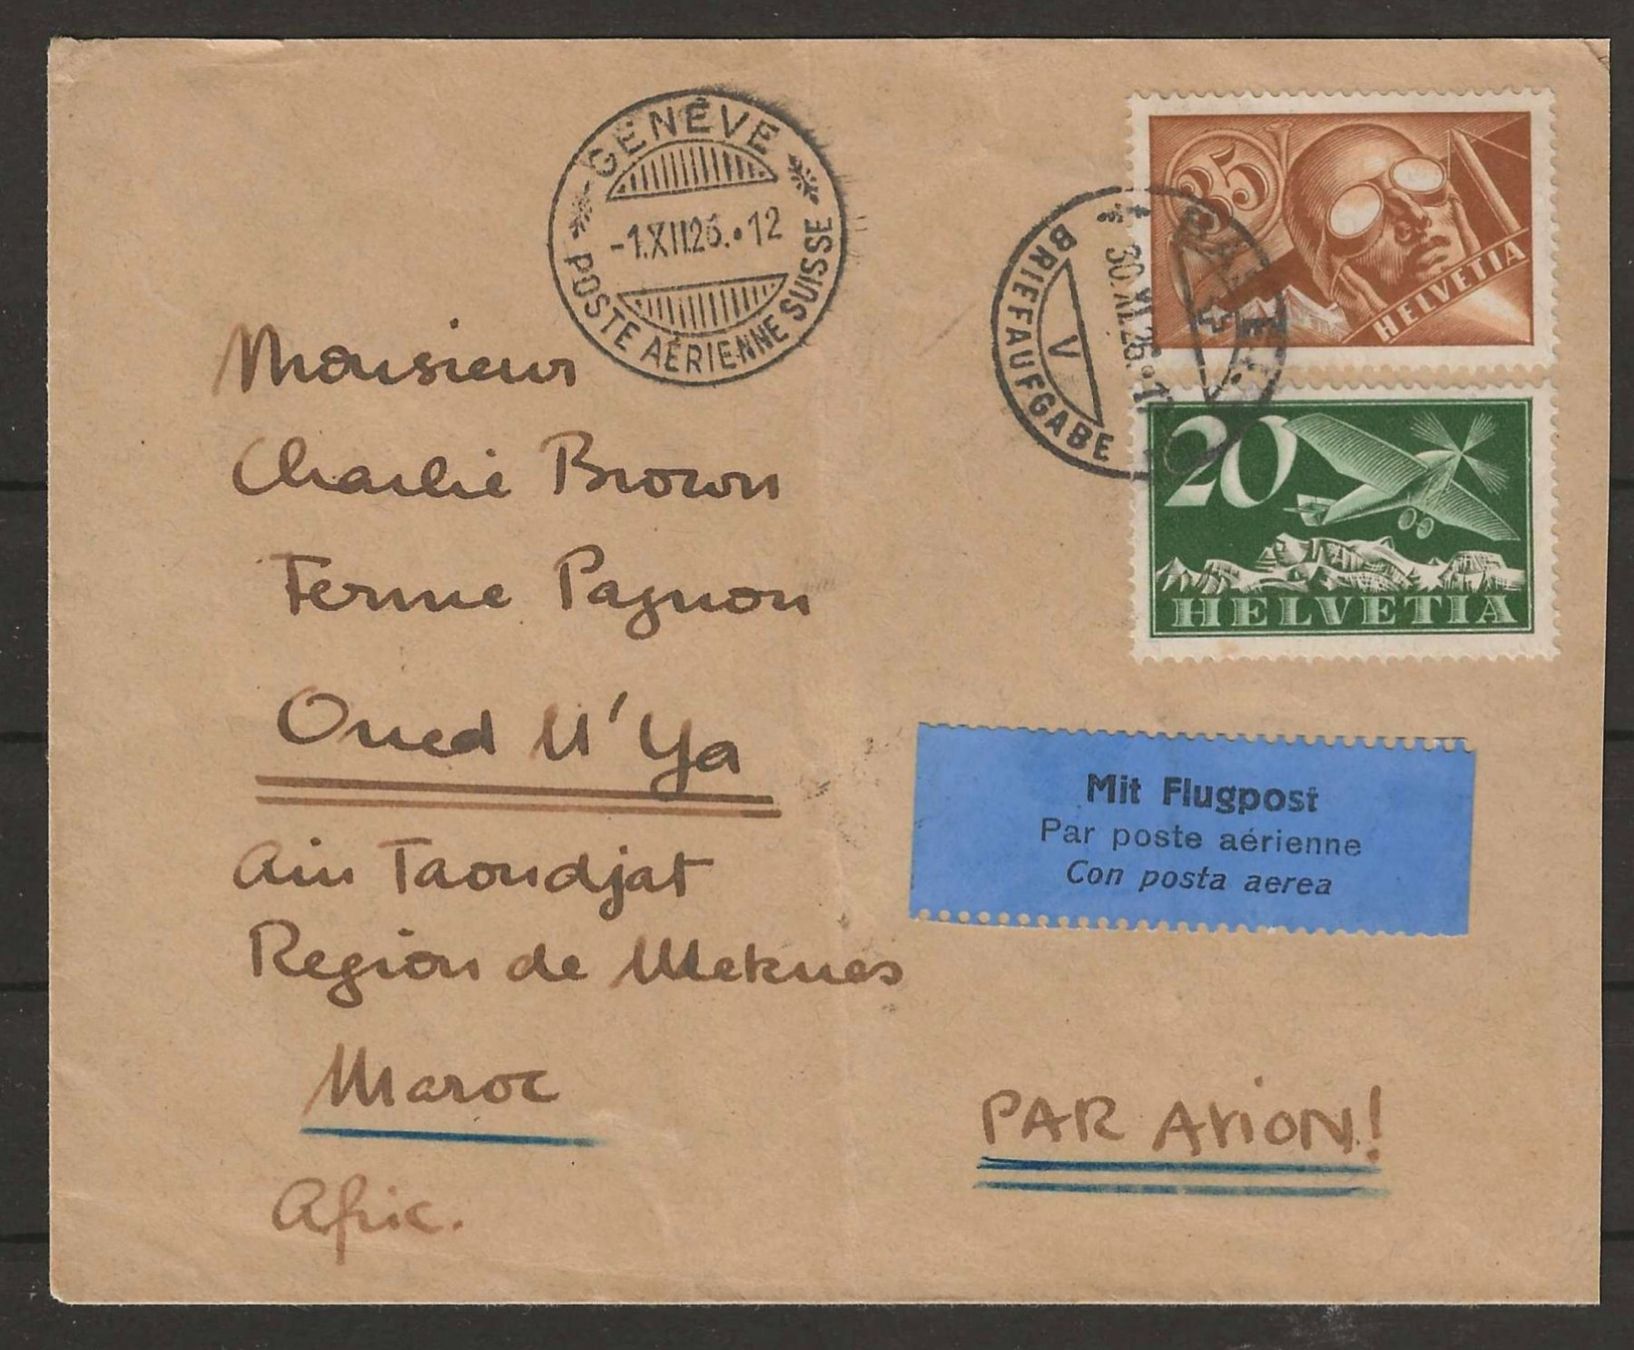 GENÈVE
-1.XII.26.•12
POSTE AÉRIENNE SUISSE
35
HELVETIA
30.XI.26.
V
BRIEFAUFGABE
20
HELVETIA
Monsieur
Charlie Brown
Ferme Pagnon
Oued N'Ya
Ain Taoudjat
Region de Meknes
Maroc
Afric.
Mit Flugpost
Par poste aérienne
Con posta aerea
PAR AVION!